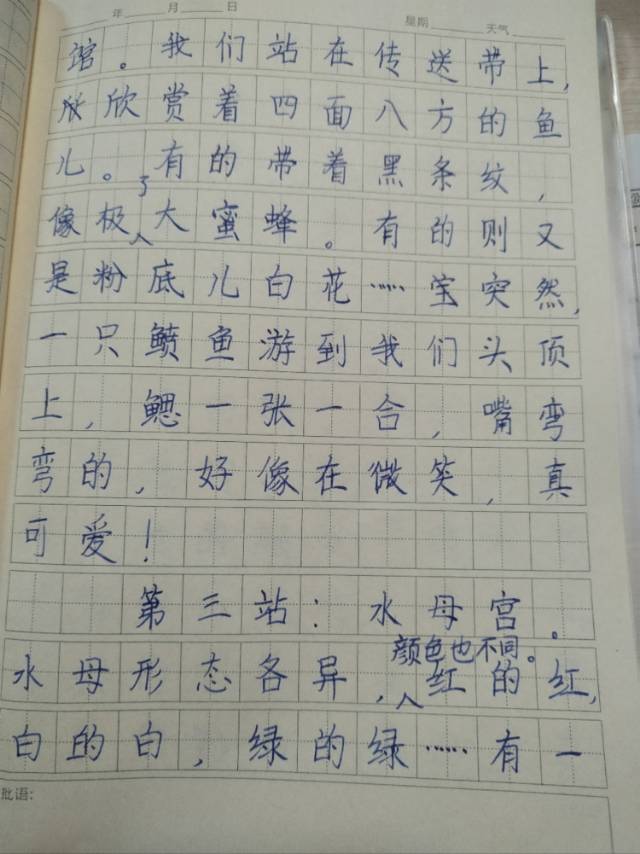 年 月 日 星期 天气
馆。我们站在传送带上,
欣赏着四面八方的鱼
儿。有的带着黑条纹,
像极了大蜜蜂。有的则又
是粉底儿白花……突然,
一只鲼鱼游到我们头顶
上,鳃一张一合,嘴弯
弯的,好像在微笑,真
可爱!
第三站:水母宫。
水母形态各异,颜色也不同。红的红,
白的白,绿的绿……有一
批语: